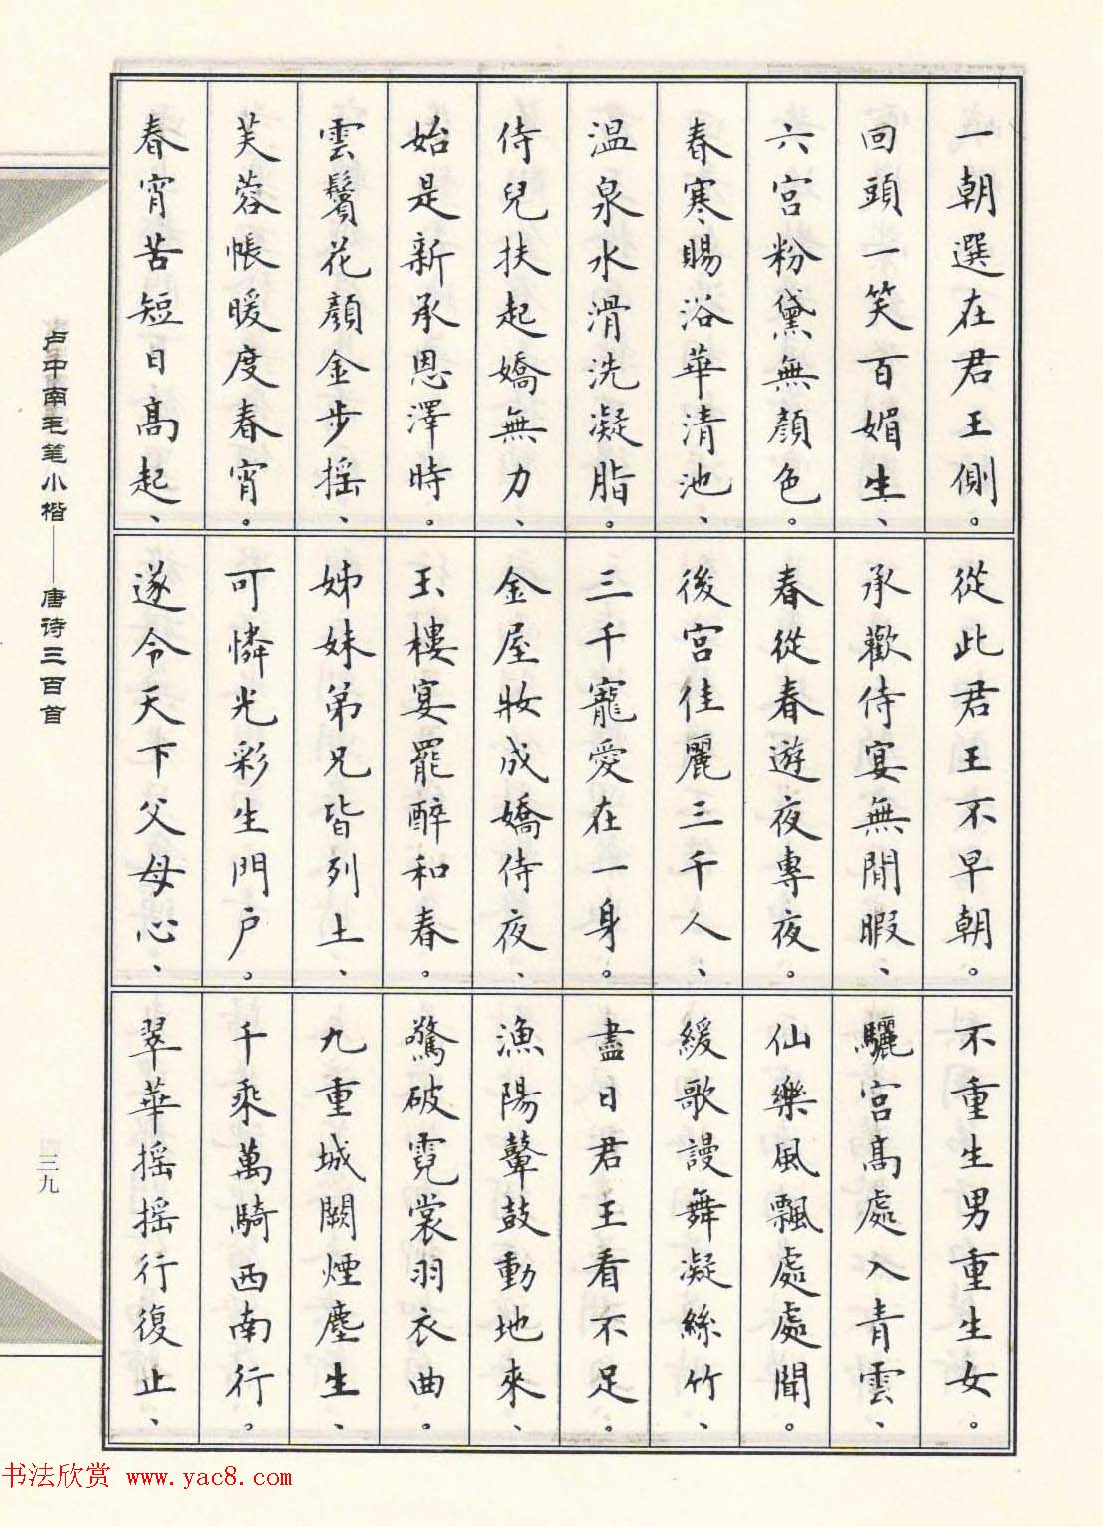 一朝選在君王側。
回頭一笑百媚生、
六宮粉黛無顏色。
春寒賜浴華清池、
温泉水滑洗凝脂。
侍兒扶起嬌無力、
始是新承恩澤時。
雲鬢花顏金步摇、
芙蓉帳暖度春宵。
春宵苦短日高起、
從此君王不早朝。
承歡侍宴無閒暇、
春從春遊夜專夜。
後宮佳麗三千人、
三千寵愛在一身。
金屋妝成嬌侍夜、
玉樓宴罷醉和春。
姊妹弟兄皆列土、
可憐光彩生門户。
遂令天下父母心、
不重生男重生女。
驪宮高處入青雲、
仙樂風飄處處聞。
緩歌謾舞凝絲竹、
盡日君王看不足。
漁陽鼙鼓動地來、
驚破霓裳羽衣曲。
九重城闕煙塵生、
千乘萬騎西南行。
翠華摇摇行復止、
卢中南毛笔小楷——唐诗三百首
三九
书法欣赏 www.yac8.com